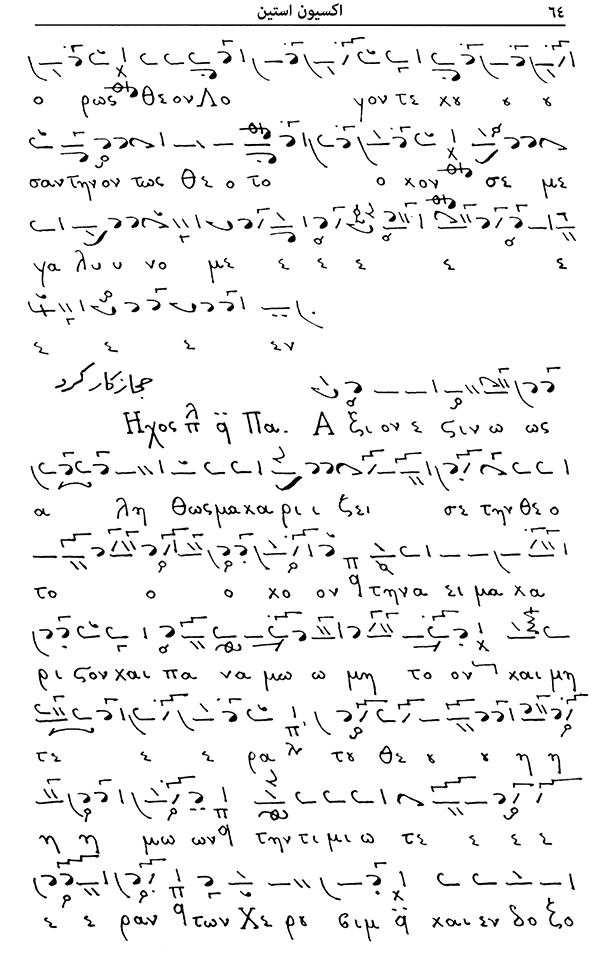 ٦٤ اكسيون استين
ο ρως Θε ον Λο γον τε κȣ ȣ ȣ
σαν την ον τως Θε ο το ο κον σε με
γα λυ υ νο με ε ε ε ε ε
ε ε ε εν
حجاز كار كرد
Ηχος λ π q̈ Πα. Α ξι ον ε ςιν ω ως
α λη θως μα κα ρι ι ζει σε την θε ο
το ο ο κο ον την α ει μα κα
ρι ςον και πα να μω ω μη το ον και μη
τε ε ε ρα τȣ Θε ȣ ȣ η η
η η μω ων την τι μι ω τε ε ε ε
ε ε ραν των Χε ρȣ βιμ και εν δο ξο